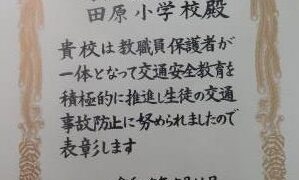 田原小学校殿
貴校は教職員保護者が
一体となって交通安全教育を
積極的に推進し生徒の交通
事故防止に努められましたので
表彰します